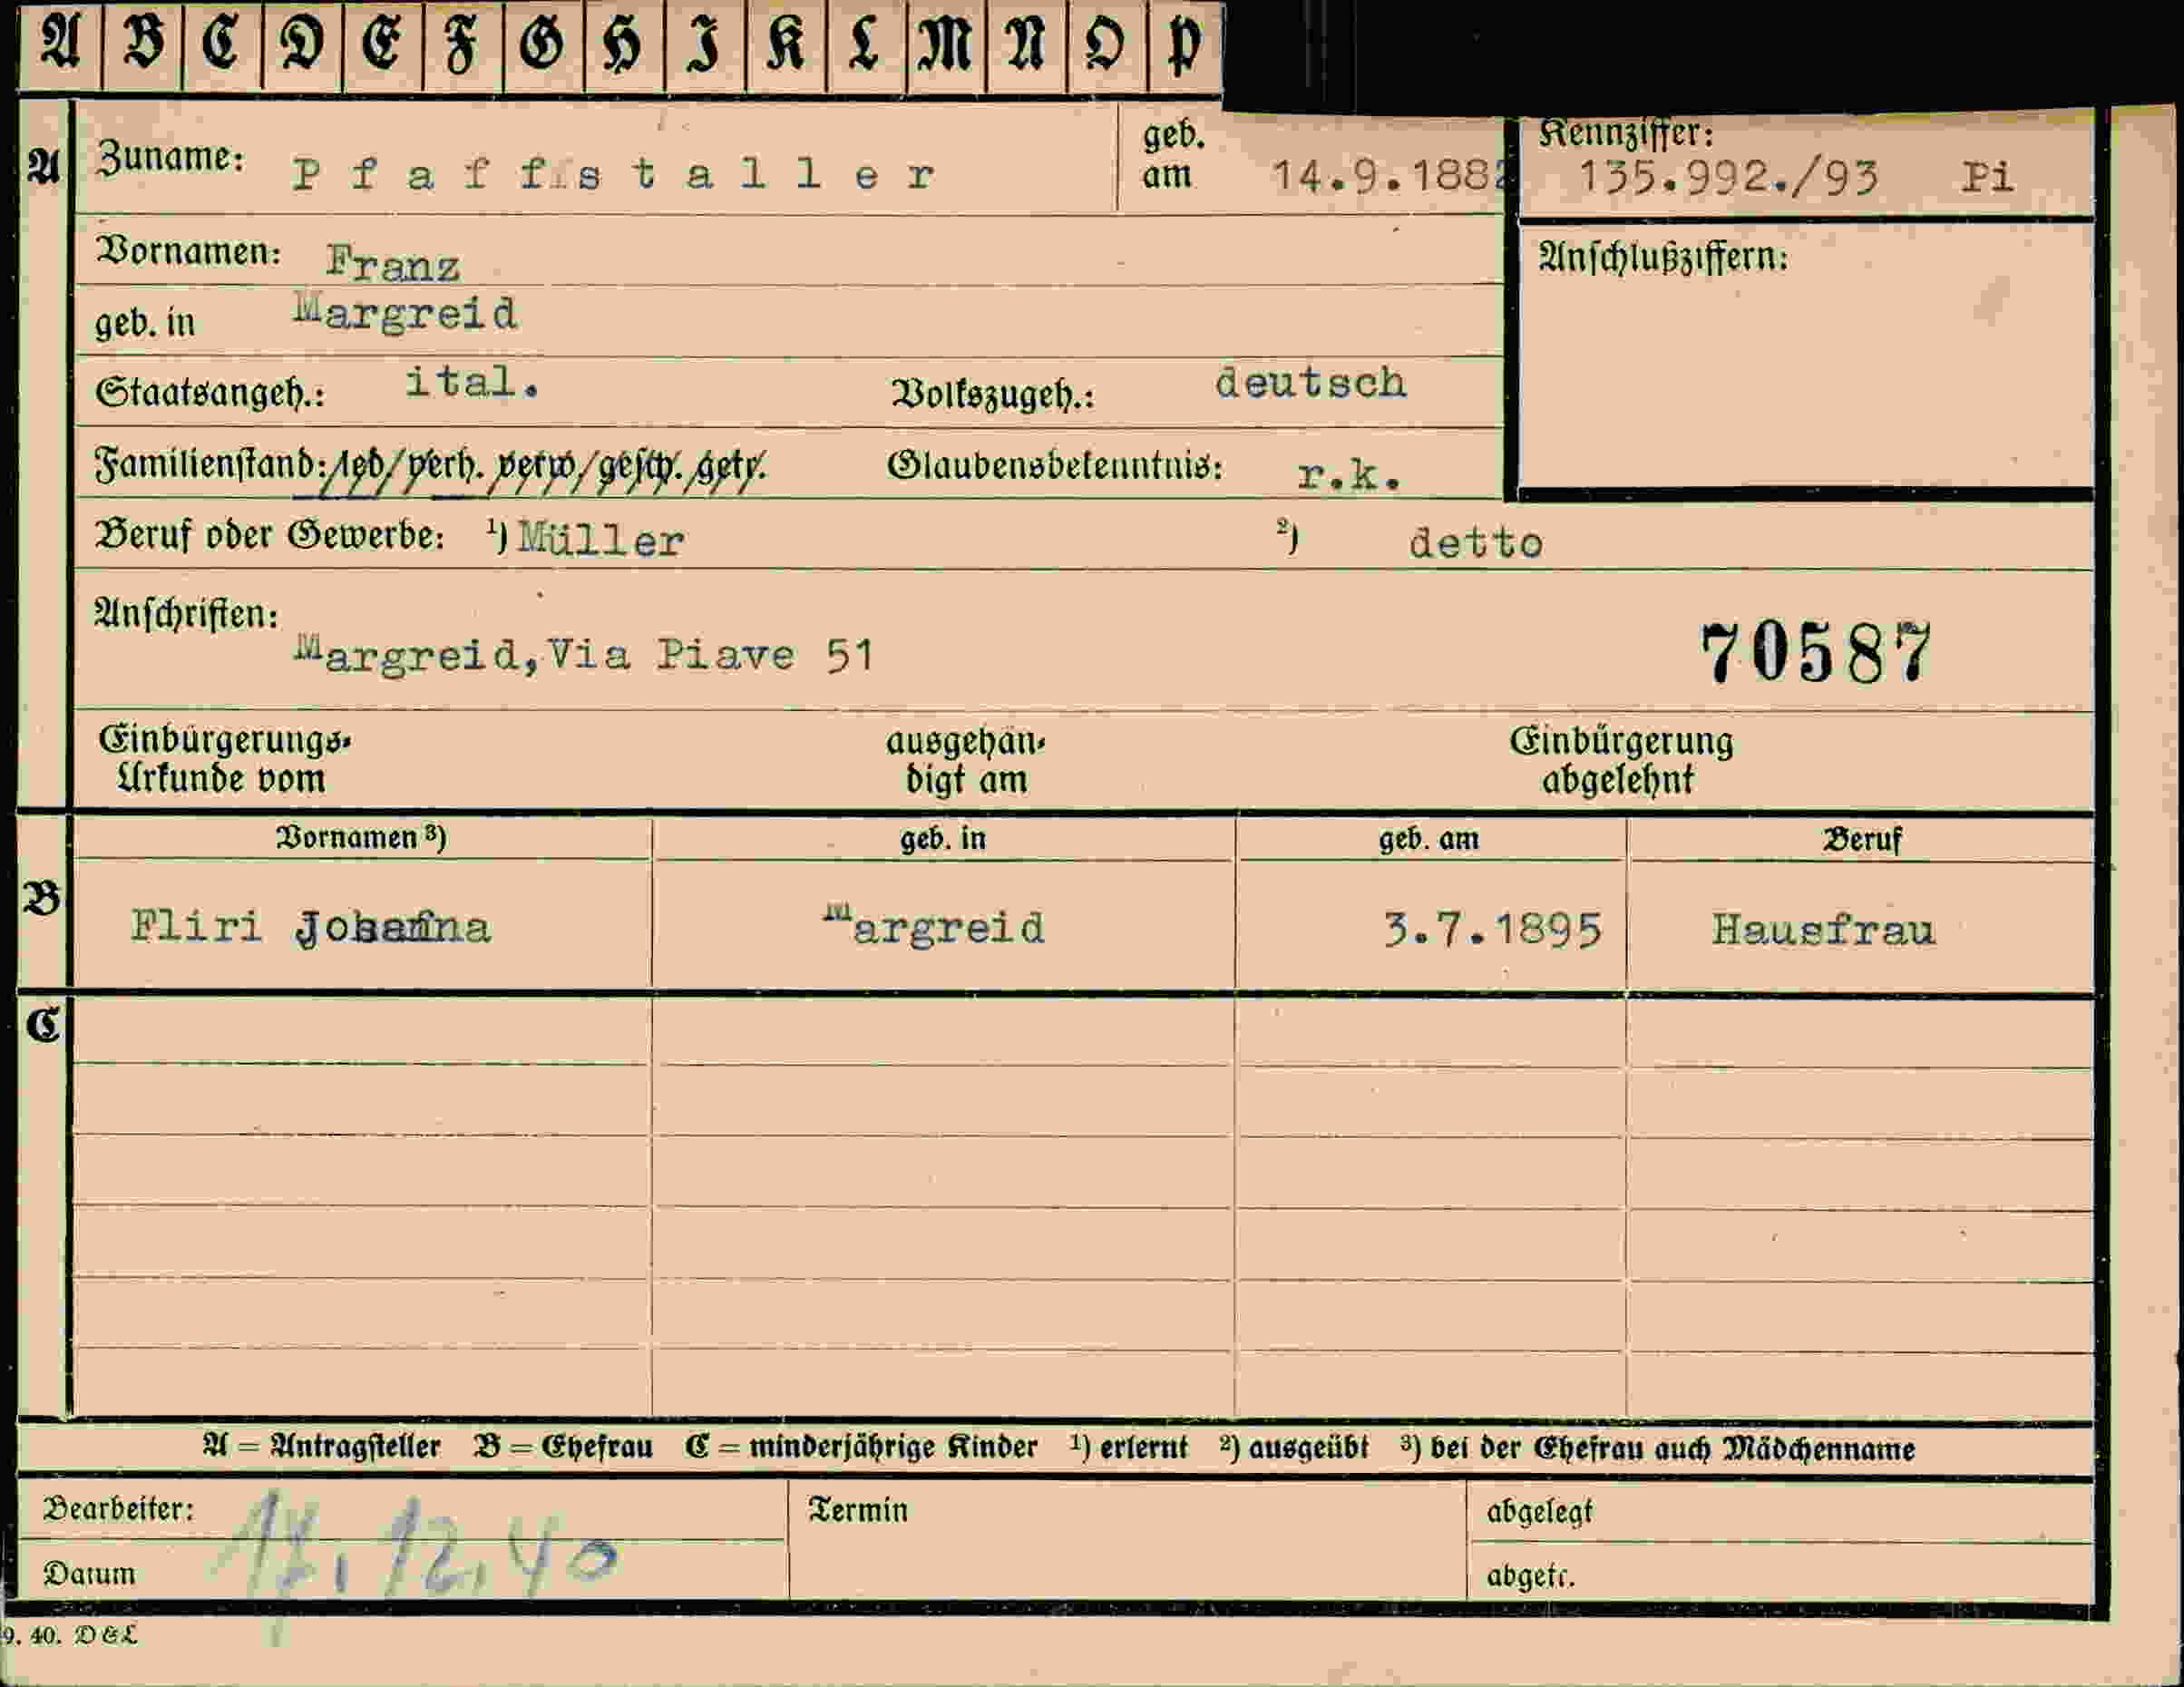 A B C D E F G H I K L M N O P
A Zuname: Pfaffstaller geb. am 14.9.1882 Kennziffer: 135.992./93 Pi
Vornamen: Franz Anschlußziffern:
geb. in Margreid
Staatsangeh.: ital. Volkszugeh.: deutsch
Familienstand: led/verh. verw/gesch. getr. Glaubensbekenntnis: r.k.
Beruf oder Gewerbe: ¹) Müller ²) detto
Anschriften:
Margreid, Via Piave 51 70587
Einbürgerungs- ausgehän- Einbürgerung
Urkunde vom digt am abgelehnt
Vornamen ³) geb. in geb. am Beruf
B Fliri Johanna Margreid 3.7.1895 Hausfrau
C
A = Antragsteller B = Ehefrau C = minderjährige Kinder ¹) erlernt ²) ausgeübt ³) bei der Ehefrau auch Mädchenname
Bearbeiter: Termin abgelegt
Datum 17.12.40 abgetr.
9. 40. D & L